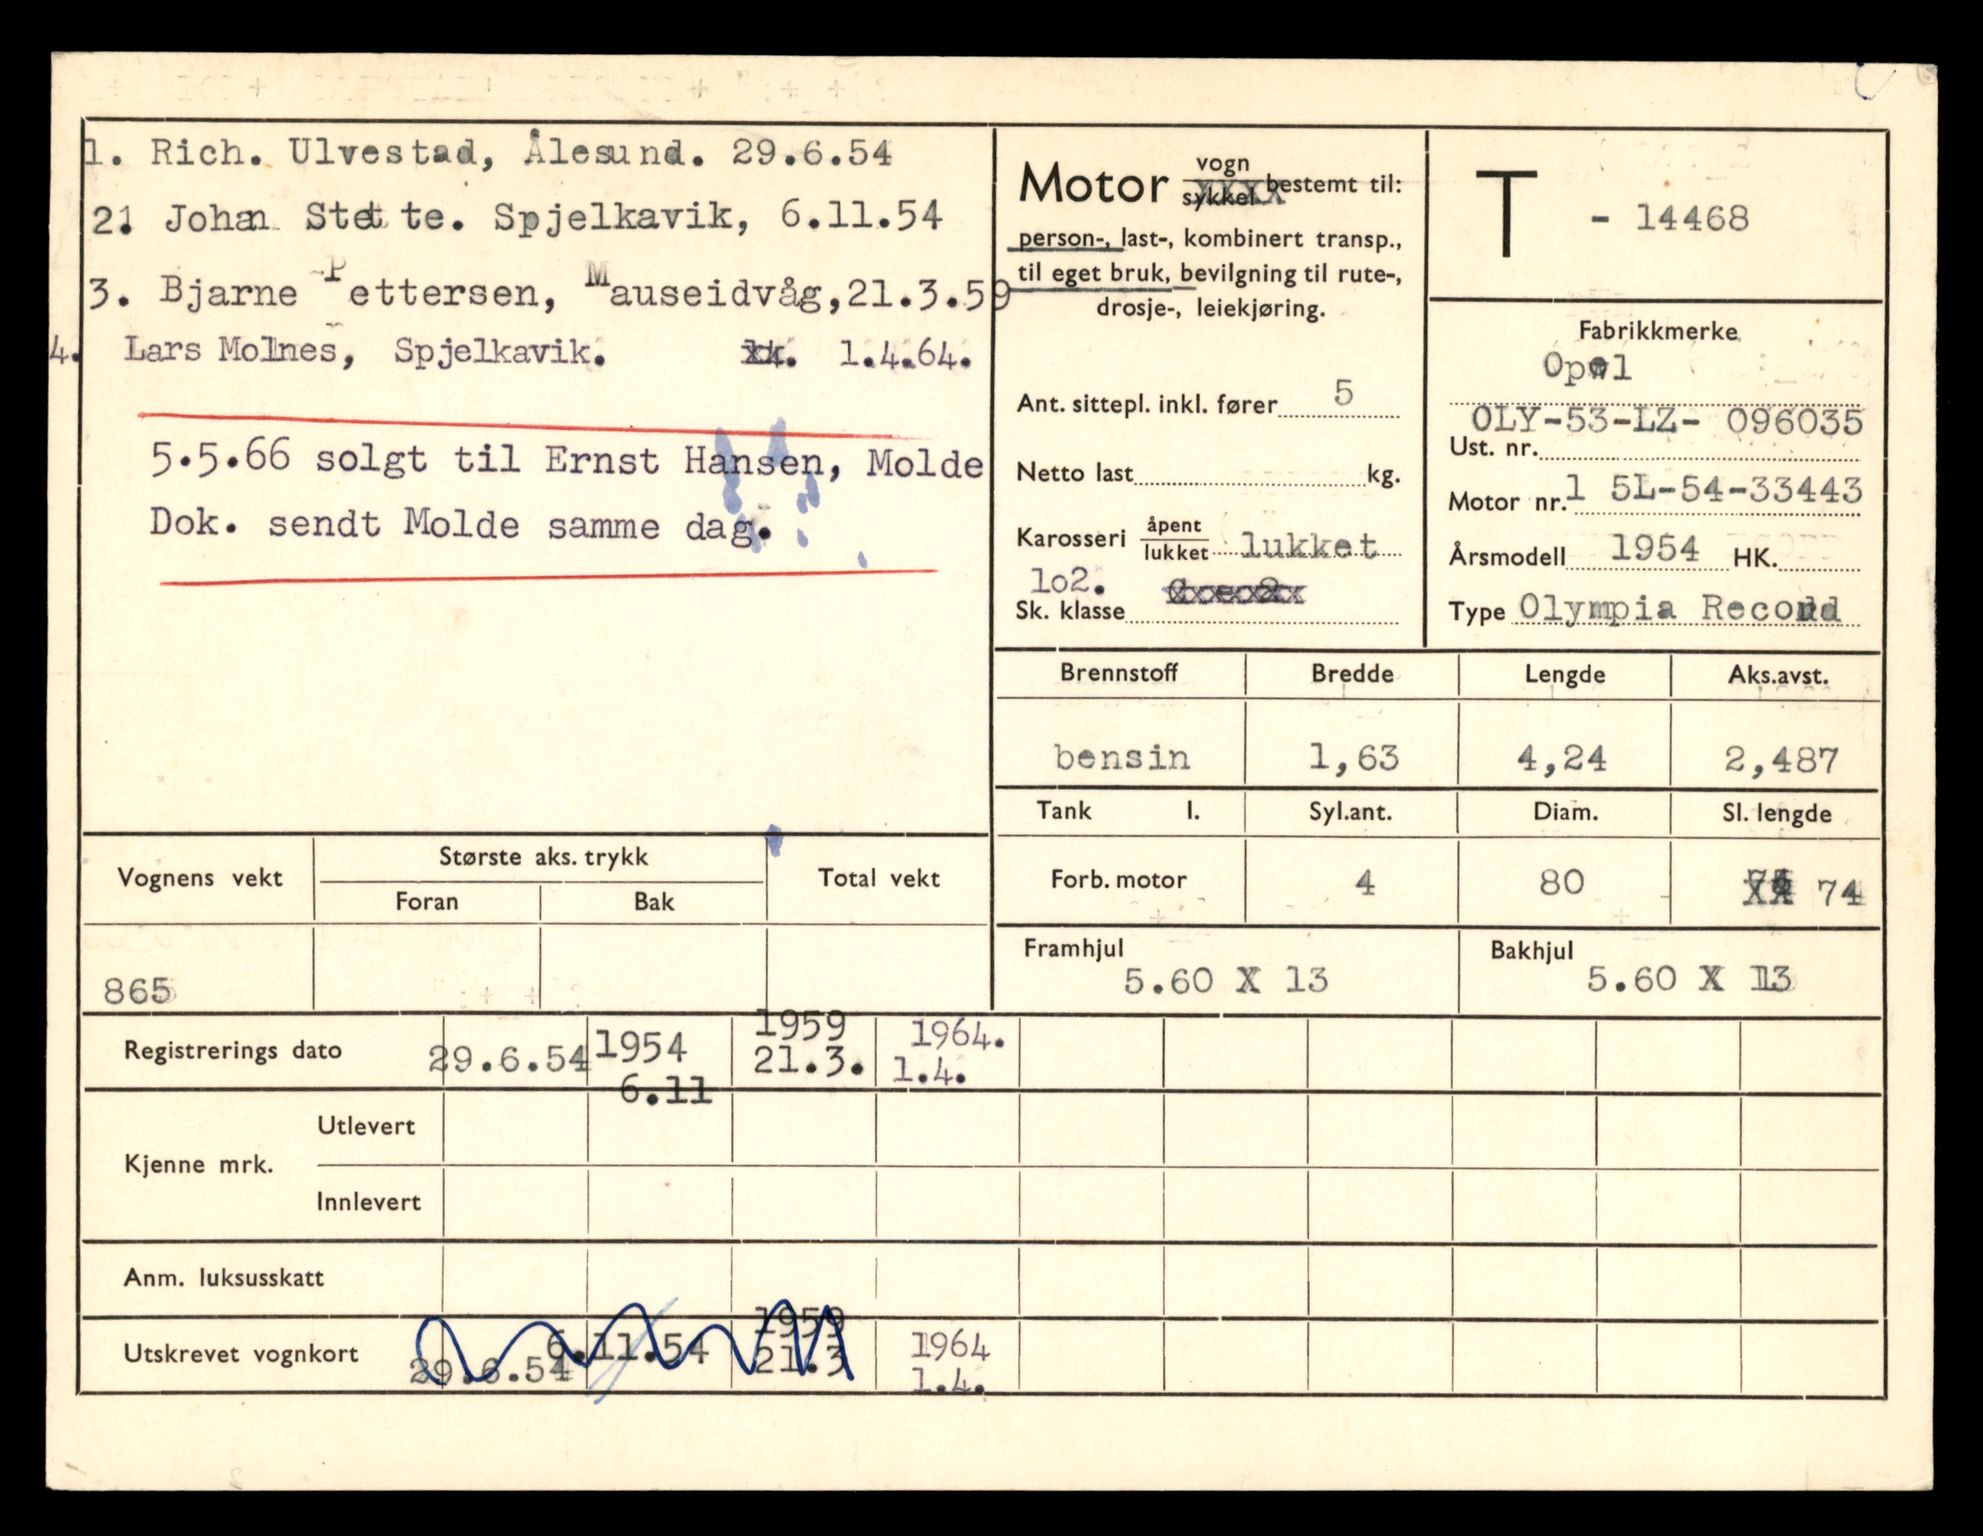 1. Rich. Ulvestad, Ålesund. 29.6.54
2. Johan Stette. Spjelkavik, 6.11.54
3. Bjarne Pettersen, Mauseidvåg, 21.3.59
4. Lars Molnes, Spjelkavik. xx. 1.4.64.
5.5.66 solgt til Ernst Hansen, Molde
Dok. sendt Molde samme dag.
Motor vogn
sykkel bestemt til:
person-, last-, kombinert transp.,
til eget bruk, bevilgning til rute-,
drosje-, leiekjøring.
Ant. sittepl. inkl. fører 5
Netto last kg.
Karosseri åpent
lukket lukket
102.
Sk. klasse
T - 14468
Fabrikkmerke
Opel
OLY-53-LZ- 096035
Ust. nr.
Motor nr. 1 5L-54-33443
Årsmodell 1954 HK.
Type Olympia Record
Brennstoff Bredde Lengde Aks.avst.
bensin 1,63 4,24 2,487
Tank l. Syl.ant. Diam. Sl. lengde
Forb. motor 4 80 74
Framhjul Bakhjul
5.60 X 13 5.60 X 13
Vognens vekt Største aks. trykk Total vekt
Foran Bak
865
Registrerings dato 29.6.54 1954 6.11 1959 21.3. 1964. 1.4.
Kjenne mrk. Utlevert
Innlevert
Anm. luksusskatt
Utskrevet vognkort 29.6.54 6.11.54 1959 21.3 1964 1.4.